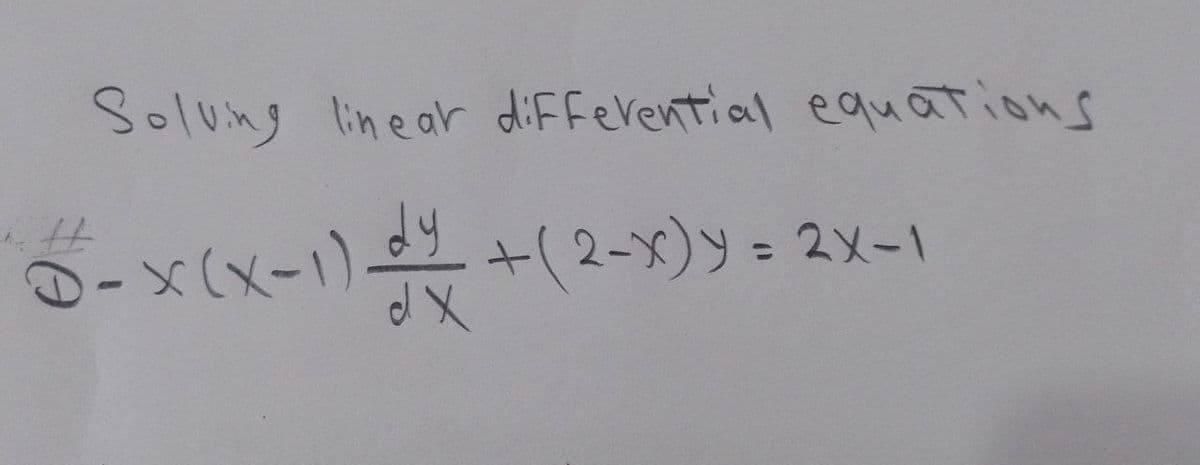 Solving linear differential equations
#
D- x(x-1) dy/dx +(2-x)y = 2x-1